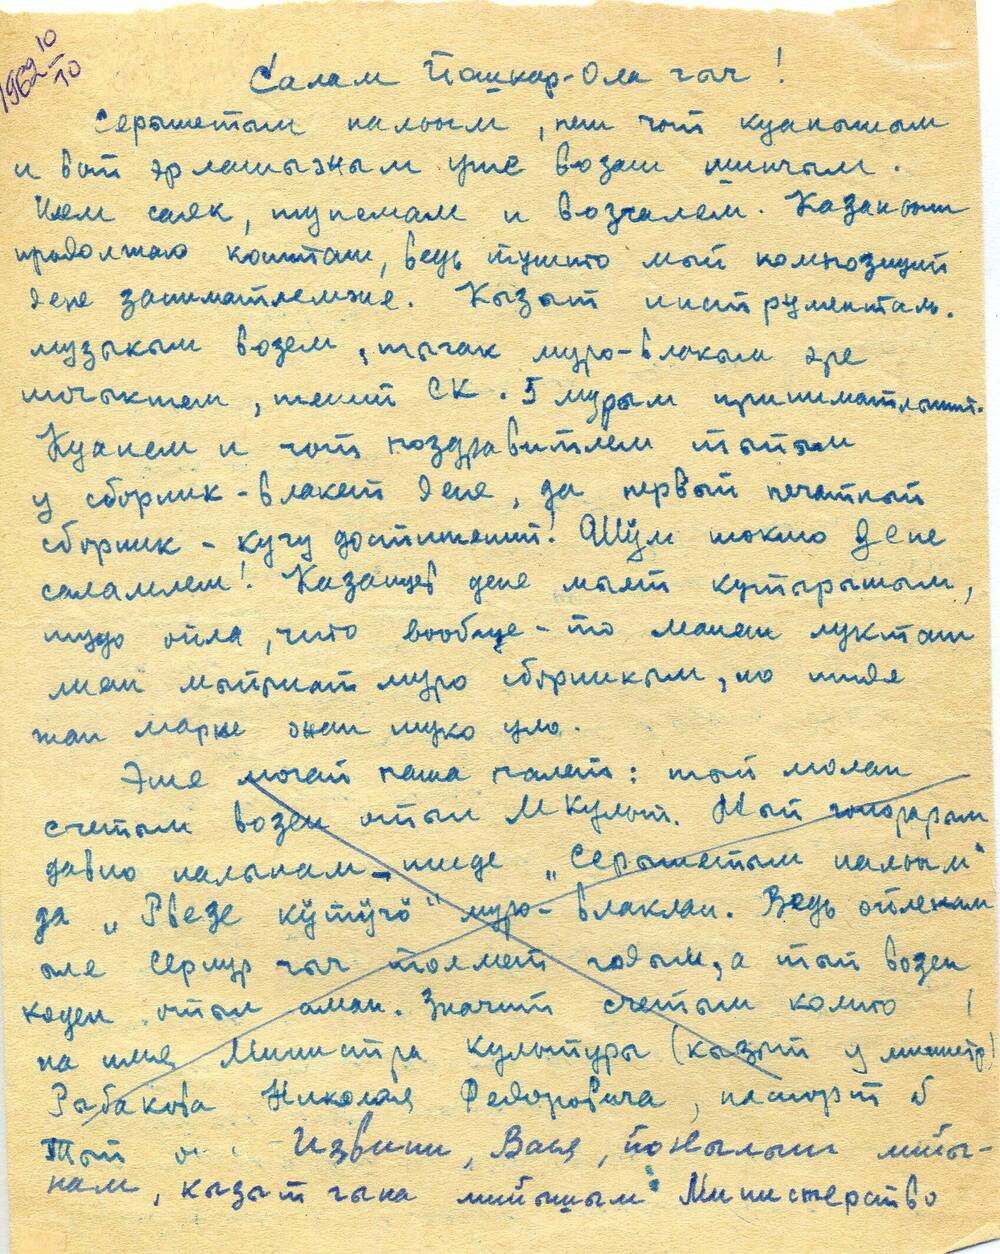 1962 10/10
Салам Йошкар-Ола гыч!
Серышетым нальым, пеш чот куанышым
и вот эрлашыжным уже возаш шинчым.
Илем саяк, тунемам и возгалем. Казаныш
продолжаю кошташ, ведь тушто мый композиций
дене заниматлемже. Кызыт инструменталь.
музыкым возем, тыгак муро-влакым эре
ончыктем, тений СК. 5 мурым приниматлышт.
Куанем и чот поздравитлем тыйым
у сборник-влакет дене, да первый печатный
сборник - кугу достижений! Шӱм шокшо дене
саламлем! Казанцев дене мыят кутырышым,
тудо ойла, что вообще-то манаш лукташ
лиеш мыйынат муро сборникым, но тиде
жап марте эшаш шуко уло.
Эше могай паша налеш: тый молан
счетым возен отыл МКульт. Мый гонорарым
давно налынам тиде „Серышетым нальым"
да „Рвезе кӱтӱчӧ" муро-влаклан. Ведь ойленам
ыле Сернур гыч толмет годым, а тый возен
коден отыл аман. Значит счетым колто
на имя Министра культуры (кызыт у министр)
Рыбакова Николая Федоровича, паспорт б
Тый Извини, Вася, йоҥылыш лийы-
нам, кызыт гына мийышым Министерство